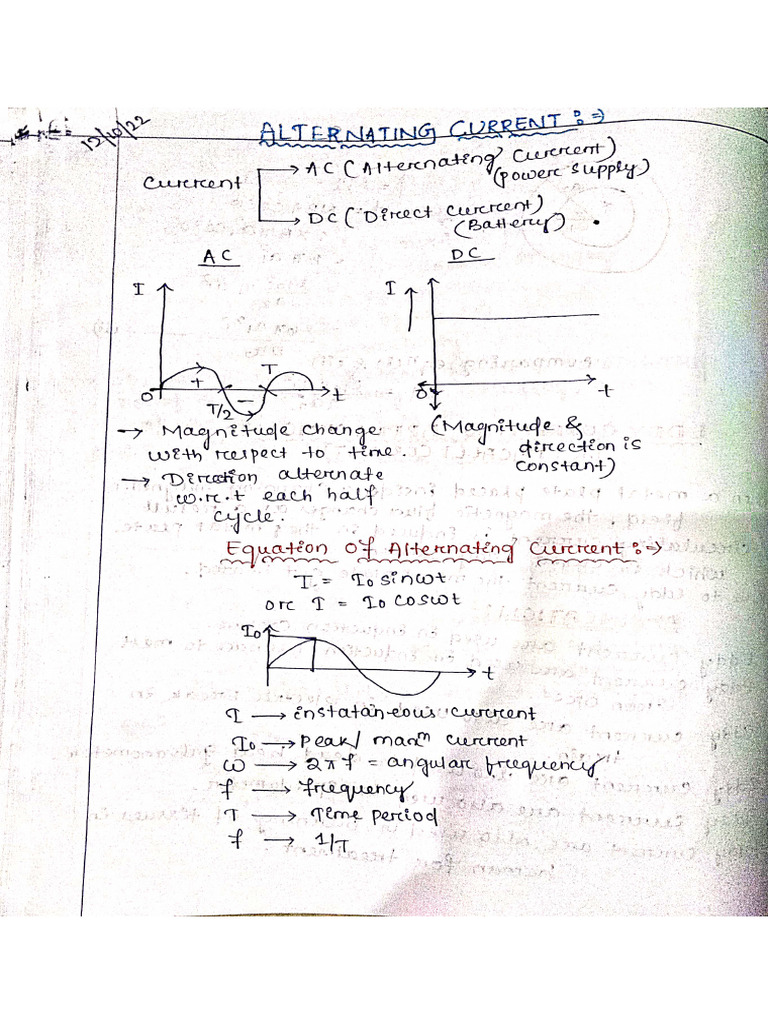 12/10/22
ALTERNATING CURRENT :⇒
Current
→ AC (Alternating Current)
(Power supply)
→ DC (Direct Current)
(Battery)
AC
DC
I
I
+
T
O
T/2
-
t
O
t
→ Magnitude change
with respect to time.
→ Direction alternate
w.r.t each half
cycle.
(Magnitude &
direction is
constant)
Equation Of Alternating Current :⇒
I = I₀ sinωt
or I = I₀ cosωt
I₀
t
I → instataneous current
I₀ → peak/ maxᵐ current
ω → 2πf = angular frequency
f → frequency
T → Time period
f → 1/T